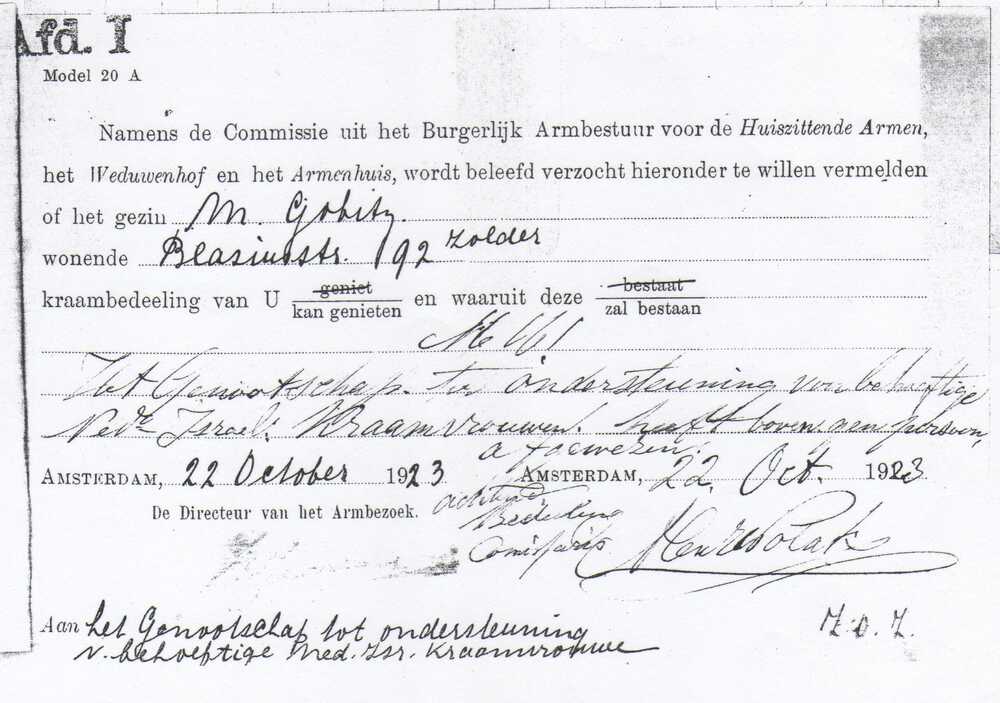 Afd. I
Model 20 A
Namens de Commissie uit het Burgerlijk Armbestuur voor de Huiszittende Armen,
het Weduwenhof en het Armenhuis, wordt beleefd verzocht hieronder te willen vermelden
of het gezin M. Gobitz.
wonende Blasiusstr. 192 zolder
kraambedeeling van U geniet kan genieten en waaruit deze bestaat zal bestaan
Het Genootschap tot ondersteuning van behoeftige
Nedr Israel. Kraamvrouwen. heeft bovengen. persoon,
afgewezen.
AMSTERDAM, 22 October 1923
AMSTERDAM, 22 Oct. 1923
De Directeur van het Armbezoek.
Bedeeling
Henr Polak
Aan het Genootschap tot ondersteuning
v. behoeftige Ned. Isr. Kraamvrouwe
Z.O.Z.